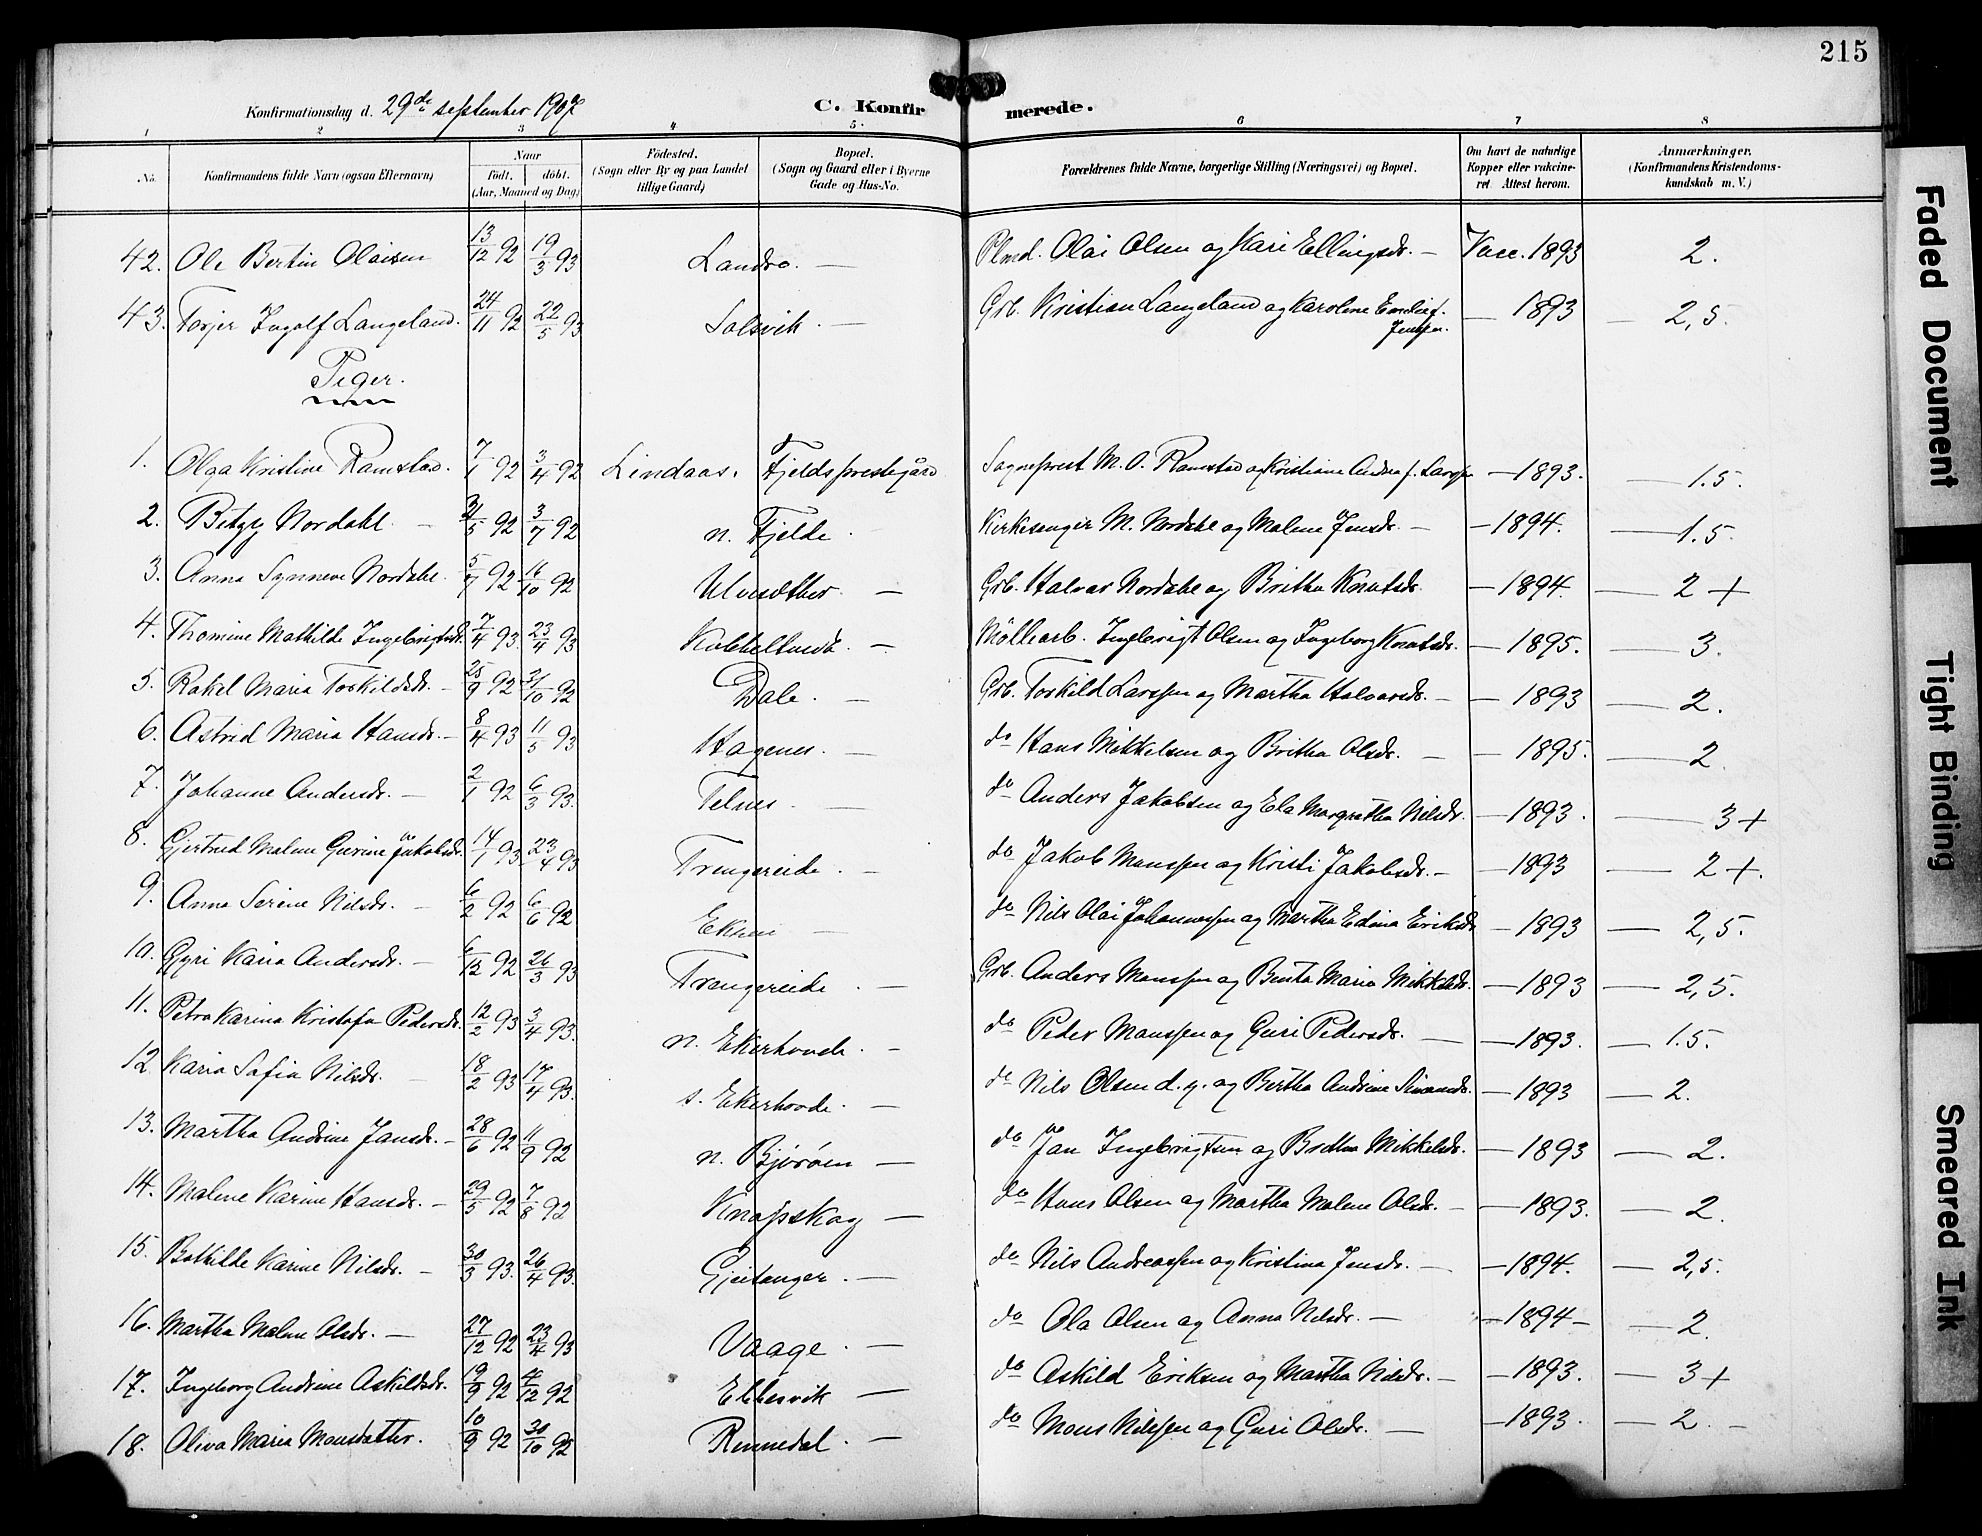 215
Konfirmationsdag d. 29de september 1907
C. Konfirmerede.
1 2 3 4 5 6 7 8
No. Konfirmandens fulde Navn (ogsaa Efternavn) Naar født. døbt. (Aar, Maaned og Dag) Fødested. (Sogn eller By og paa Landet tillige Gaard) Bopæl. (Sogn og Gaard eller i Byerne Gade og Hus-No. Forældrenes fulde Navne, borgerlige Stilling (Næringsvei) og Bopæl. Om havt de naturlige Kopper eller vakcineret Attest herom. Anmærkninger. (Konfirmandens Kristendomskundskab m. V.)
42. Ole Bertin Olaisen 13/12 92 19/3 93 Landro. — Plmd. Olai Olsen og Kari Ellingsdr. — Vacc. 1893 2.
43. Torjer Ingolf Langeland. 24/11 92 22/5 93 Solsvik. — Grb. Kristian Langeland og Karolene Emelie f. Jensen. — 1893 — 2,5.
Piger.
1. Olga Kristine Ramstad. 7/1 92 3/4 92 Lindaas. Fjeldsprestegård Sogneprest M. O. Ramstad og Kristiane Andrea f. Larsen — 1893. — 1.5.
2. Betzy Nordahl. — 31/5 92 3/7 92 n. Fjelde. Kirkesanger M. Nordahl og Malene Jensdr. — — 1894. — 1.5.
3. Anna Synneve Nordahl. 5/7 92 16/10 92 Ulvesæther. — Grb. Halvar Nordahl og Britha Knutsdr. — 1894. — 2 +
4. Thomine Mathilde Ingebrigtsdr. 7/4 93. 23/4 93 Kobbeltvedt. — Møllearb. Ingebrigt Olsen og Ingeborg Knutsdr. — 1895. — 3.
5. Rakel Maria Torkildsdr. — 25/9 92 31/10 92 Dale. — Grb. Torkild Larssen og Martha Halvarsdr. — — 1893 — 2.
6. Astrid Maria Hansdr. — 8/4 93 11/5 93 Hagenes. — do Hans Mikkelsen og Britha Olsdr. — — 1895. — 2
7. Johanne Andersdr. — 2/1 92 6/3 93. Telnes. — do Anders Jakobsen og Ela Margretha Nilsdr. — 1893. — 3+
8. Gjertrud Malene Gurine Jakobsdr. 14/1 93 23/4 93 Trengereide. — do Jakob Monssen og Kristi Jakobsdr. — — 1893 — 2+.
9. Anna Serine Nilsdr. — 6/2 92 6/6 92 Eksen — do Nils Olai Johannessen og Martha Edina Eriksdr — 1893 — 2,5.
10. Gyri Karia Andersdr. — 6/12 92 26/3 93 Trengereide. — Grb. Anders Monssen og Benta Maria Mikkelsdr. — 1893 — 2,5.
11. Petra Karina Kristofa Pedersdr. 12/2 93 3/4 93. n. Ekerhovde. — do Peder Monssen og Guri Pedersdr. — — 1893. — 1.5.
12 Karia Sofia Nilsdr. — 18/2 93 17/4 93. s. Ekerhovde. — do Nils Olsen d. y. og Bertha Andrine Simonsdr. — 1893 — 2.
13. Martha Andrine Jansdr. — 28/6 92 11/9 92 n. Bjørøen — do Jan Ingebrigtsen og Britha Mikkelsdr. — 1893 — 2.
14. Malene Karine Hansdr. — 29/5 92 7/8 92 Knapskog — do Hans Olsen og Martha Malene Olsdr. — — 1893. — 2.
15. Bothilde Karine Nilsdr. — 30/3 93. 26/4 93. Gjeitanger. — do Nils Andreassen og Kristina Jensdr. — — 1894. — 2,5.
16. Martha Malene Olsdr. — 27/12 92 23/4 93 Vaage. — do Ola Olsen og Anna Nilsdr. — — 1894 — — 2.
17. Ingeborg Andrine Askildsdr. 19/9 92 4/12 92 Ebbesvik — do Askild Eriksen og Martha Nilsdr. — — 1893. — 3+
18. Oliva Maria Monsdatter. 10/9 92 30/10 92 Rennedal. — do Mons Nilssen og Guri Olsdr. — — 1893. — 2. —
Faded Document
Tight Binding
Smeared Ink